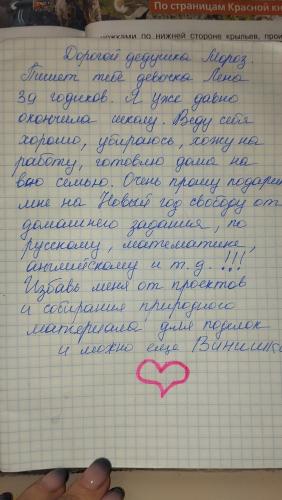 По страницам Красной кни
ножками по нижней стороне крыльев, прои
Дорогой дедушка Мороз.
Пишет тебе девочка Лена
39 годиков. Я уже давно
окончила школу. Веду себя
хорошо, убираюсь, хожу на
работу, готовлю дома на
всю семью. Очень прошу подари
мне на Новый год свободу от
домашнего задания, по
русскому, математике,
английскому и т.д. !!!
Избавь меня от проектов
и собирания природного
материала для поделок
и можно еще Винишк